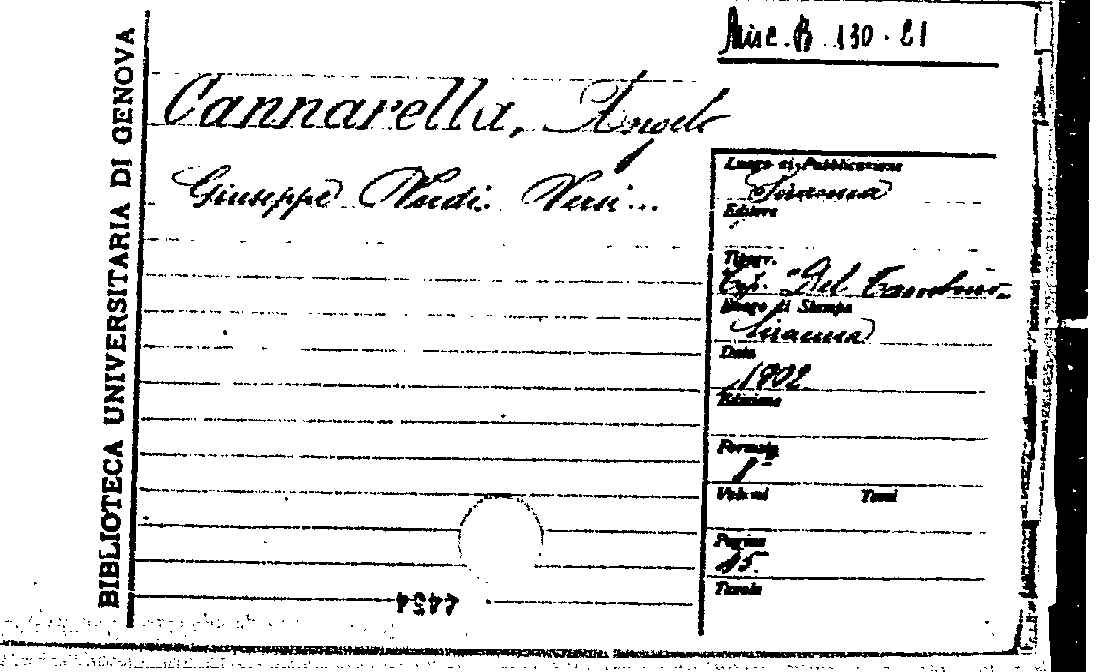 Misc. B 130 - 21
BIBLIOTECA UNIVERSITARIA DI GENOVA
Cannarella, Angelo
Giuseppe Verdi. Versi...
Luogo di Pubblicazione
Siracusa
Editore
Tipogr.
Tip. "Del Tamburo"
Luogo di Stampa
Siracusa
Data
1902
Edizione
Formato
8°
Volumi Tomi
Pagine
15.
Tavole
4454